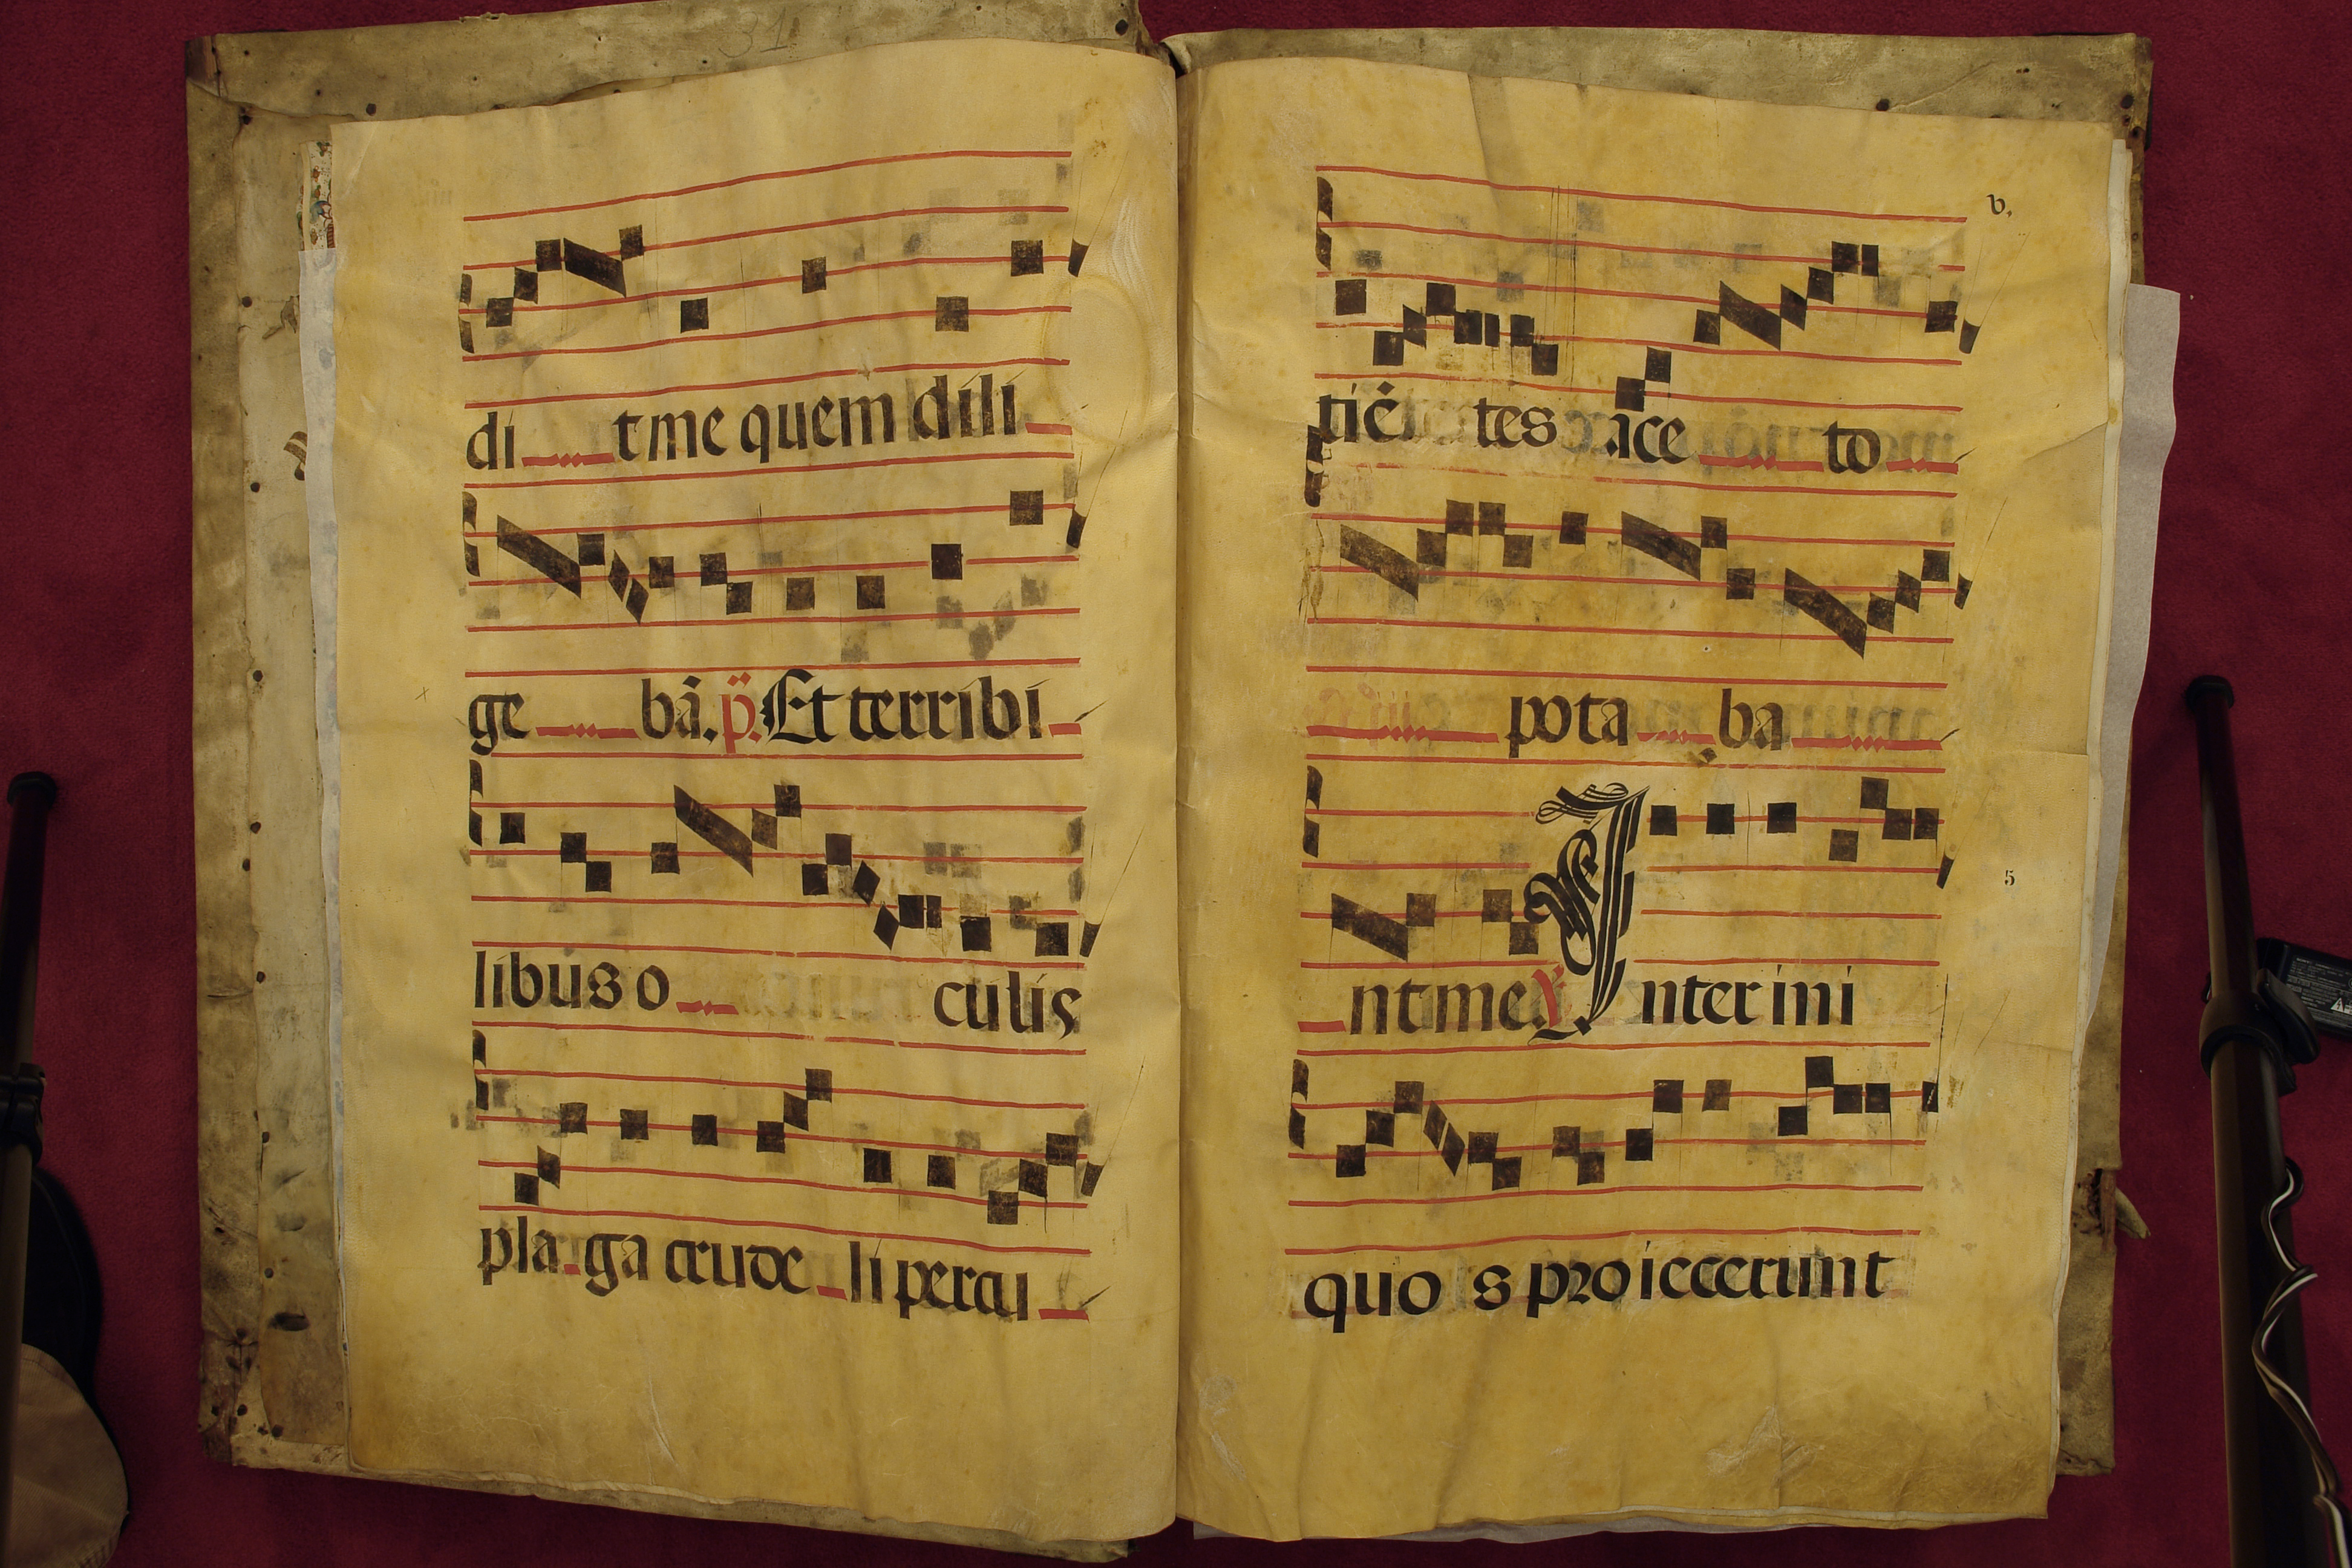 31
di t me quem dili
ge bā. p̈. Et terribi
libus o culis
pla ga crude li percu
v.
tiē tes ace to
pota ba
nt me. ℣. Inter ini
5
quo s proiecerunt